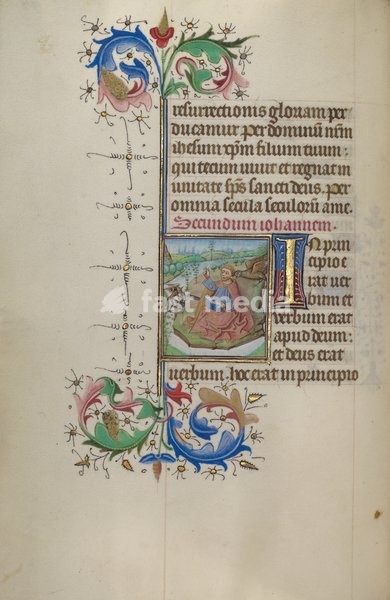 resurrectionis gloriam per
ducamur Per dominū nr̄m
ihesum xp̄m filium tuum:
qui tecum viuit et regnat in
vnitate sp̄s sancti deus. Per
omnia secula seculorū ame.
Secundum iohannem.
IN prin
cipio e
rat uer
bum et
verbum erat
apud deum:
et deus erat
verbum. hoc erat in principio
fast media